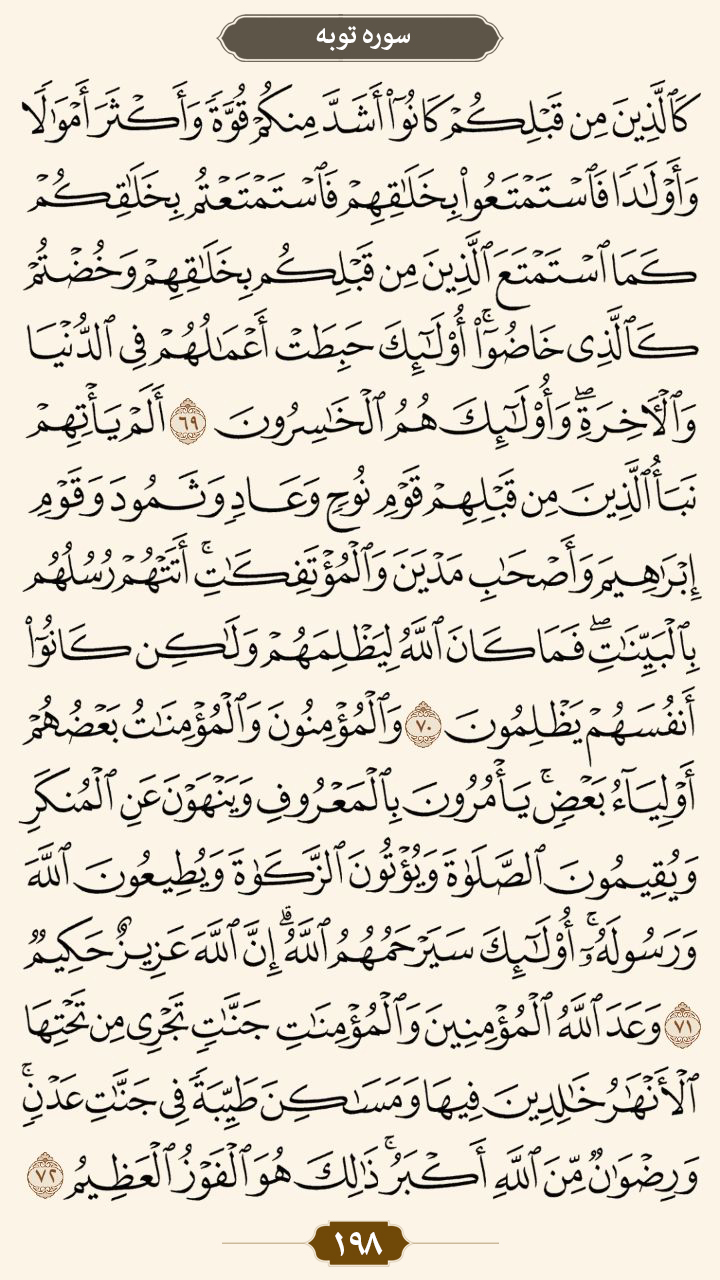 سوره توبه
كَٱلَّذِينَ مِن قَبۡلِكُمۡ كَانُوٓاْ أَشَدَّ مِنكُمۡ قُوَّةٗ وَأَكۡثَرَ أَمۡوَٰلٗا
وَأَوۡلَٰدٗا فَٱسۡتَمۡتَعُواْ بِخَلَٰقِهِمۡ فَٱسۡتَمۡتَعۡتُم بِخَلَٰقِكُمۡ
كَمَا ٱسۡتَمۡتَعَ ٱلَّذِينَ مِن قَبۡلِكُم بِخَلَٰقِهِمۡ وَخُضۡتُمۡ
كَٱلَّذِي خَاضُوٓاْۚ أُوْلَٰٓئِكَ حَبِطَتۡ أَعۡمَٰلُهُمۡ فِي ٱلدُّنۡيَا
وَٱلۡأٓخِرَةِۖ وَأُوْلَٰٓئِكَ هُمُ ٱلۡخَٰسِرُونَ ٦٩ أَلَمۡ يَأۡتِهِمۡ
نَبَأُ ٱلَّذِينَ مِن قَبۡلِهِمۡ قَوۡمِ نُوحٖ وَعَادٖ وَثَمُودَ وَقَوۡمِ
إِبۡرَٰهِيمَ وَأَصۡحَٰبِ مَدۡيَنَ وَٱلۡمُؤۡتَفِكَٰتِۚ أَتَتۡهُمۡ رُسُلُهُم
بِٱلۡبَيِّنَٰتِۖ فَمَا كَانَ ٱللَّهُ لِيَظۡلِمَهُمۡ وَلَٰكِن كَانُوٓاْ
أَنفُسَهُمۡ يَظۡلِمُونَ ٧٠ وَٱلۡمُؤۡمِنُونَ وَٱلۡمُؤۡمِنَٰتُ بَعۡضُهُمۡ
أَوۡلِيَآءُ بَعۡضٖۚ يَأۡمُرُونَ بِٱلۡمَعۡرُوفِ وَيَنۡهَوۡنَ عَنِ ٱلۡمُنكَرِ
وَيُقِيمُونَ ٱلصَّلَوٰةَ وَيُؤۡتُونَ ٱلزَّكَوٰةَ وَيُطِيعُونَ ٱللَّهَ
وَرَسُولَهُۥٓۚ أُوْلَٰٓئِكَ سَيَرۡحَمُهُمُ ٱللَّهُۗ إِنَّ ٱللَّهَ عَزِيزٌ حَكِيمٞ
٧١ وَعَدَ ٱللَّهُ ٱلۡمُؤۡمِنِينَ وَٱلۡمُؤۡمِنَٰتِ جَنَّٰتٖ تَجۡرِي مِن تَحۡتِهَا
ٱلۡأَنۡهَٰرُ خَٰلِدِينَ فِيهَا وَمَسَٰكِنَ طَيِّبَةٗ فِي جَنَّٰتِ عَدۡنٖۚ
وَرِضۡوَٰنٞ مِّنَ ٱللَّهِ أَكۡبَرُۚ ذَٰلِكَ هُوَ ٱلۡفَوۡزُ ٱلۡعَظِيمُ ٧٢
١٩٨